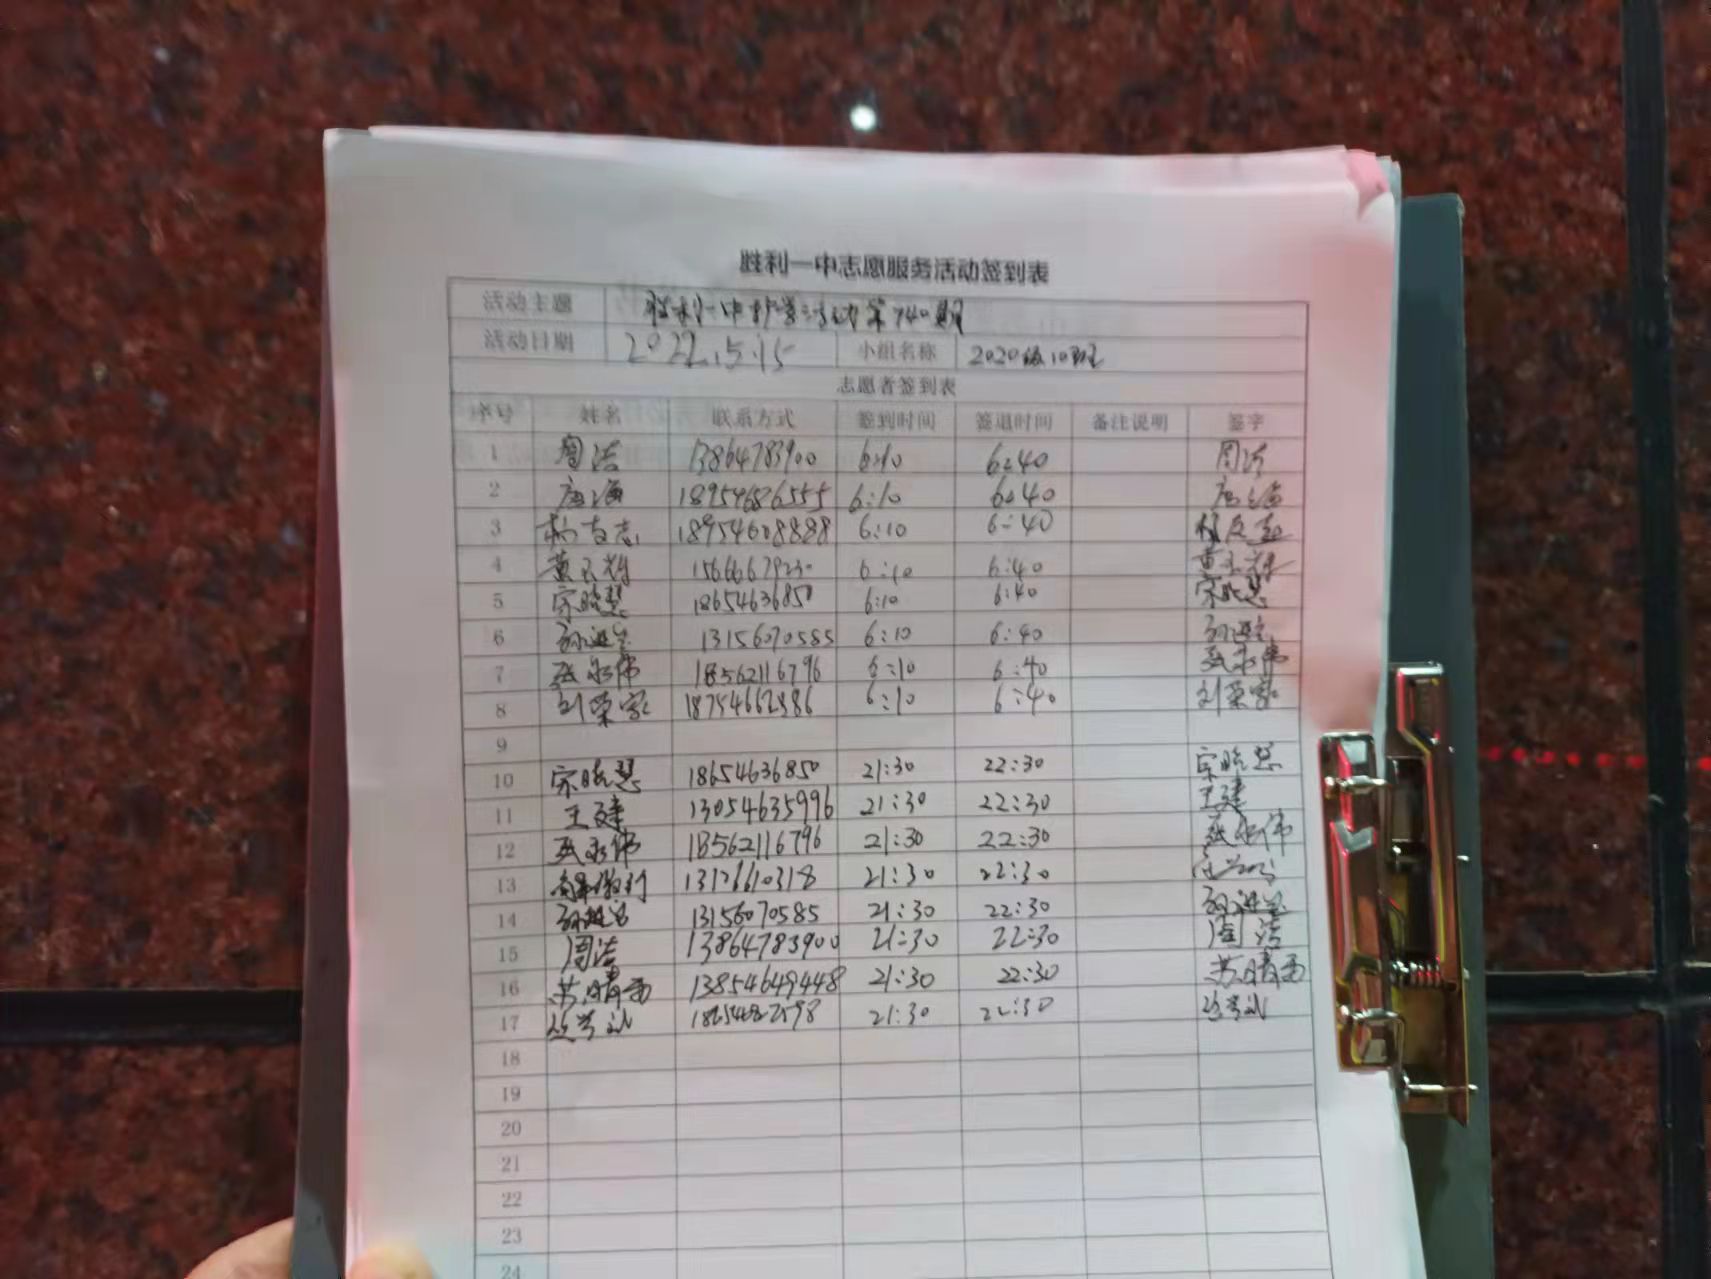 胜利一中志愿服务活动签到表
活动主题 胜利一中护学活动第740期
活动日期 2022.5.15 小组名称 2020级10班
志愿者签到表
序号 姓名 联系方式 签到时间 签退时间 备注说明 签字
1 周洁 13864783900 6:10 6:40 周洁
2 18954686555 6:10 6:40
3 18954608888 6:10 6:40
4 6:10 6:40
5 宋晓慧 18654636850 6:10 6:40 宋晓慧
6 13156070585 6:10 6:40
7 张永伟 18562116796 6:10 6:40 张永伟
8 刘荣家 6:10 6:40 刘荣家
9
10 宋晓慧 18654636850 21:30 22:30 宋晓慧
11 王建 13054635996 21:30 22:30 王建
12 张永伟 18562116796 21:30 22:30 张永伟
13 21:30 22:30
14 13156070585 21:30 22:30
15 周洁 13864783900 21:30 22:30 周洁
16 苏晴雨 13854649448 21:30 22:30 苏晴雨
17 21:30 22:30
18
19
20
21
22
23
24